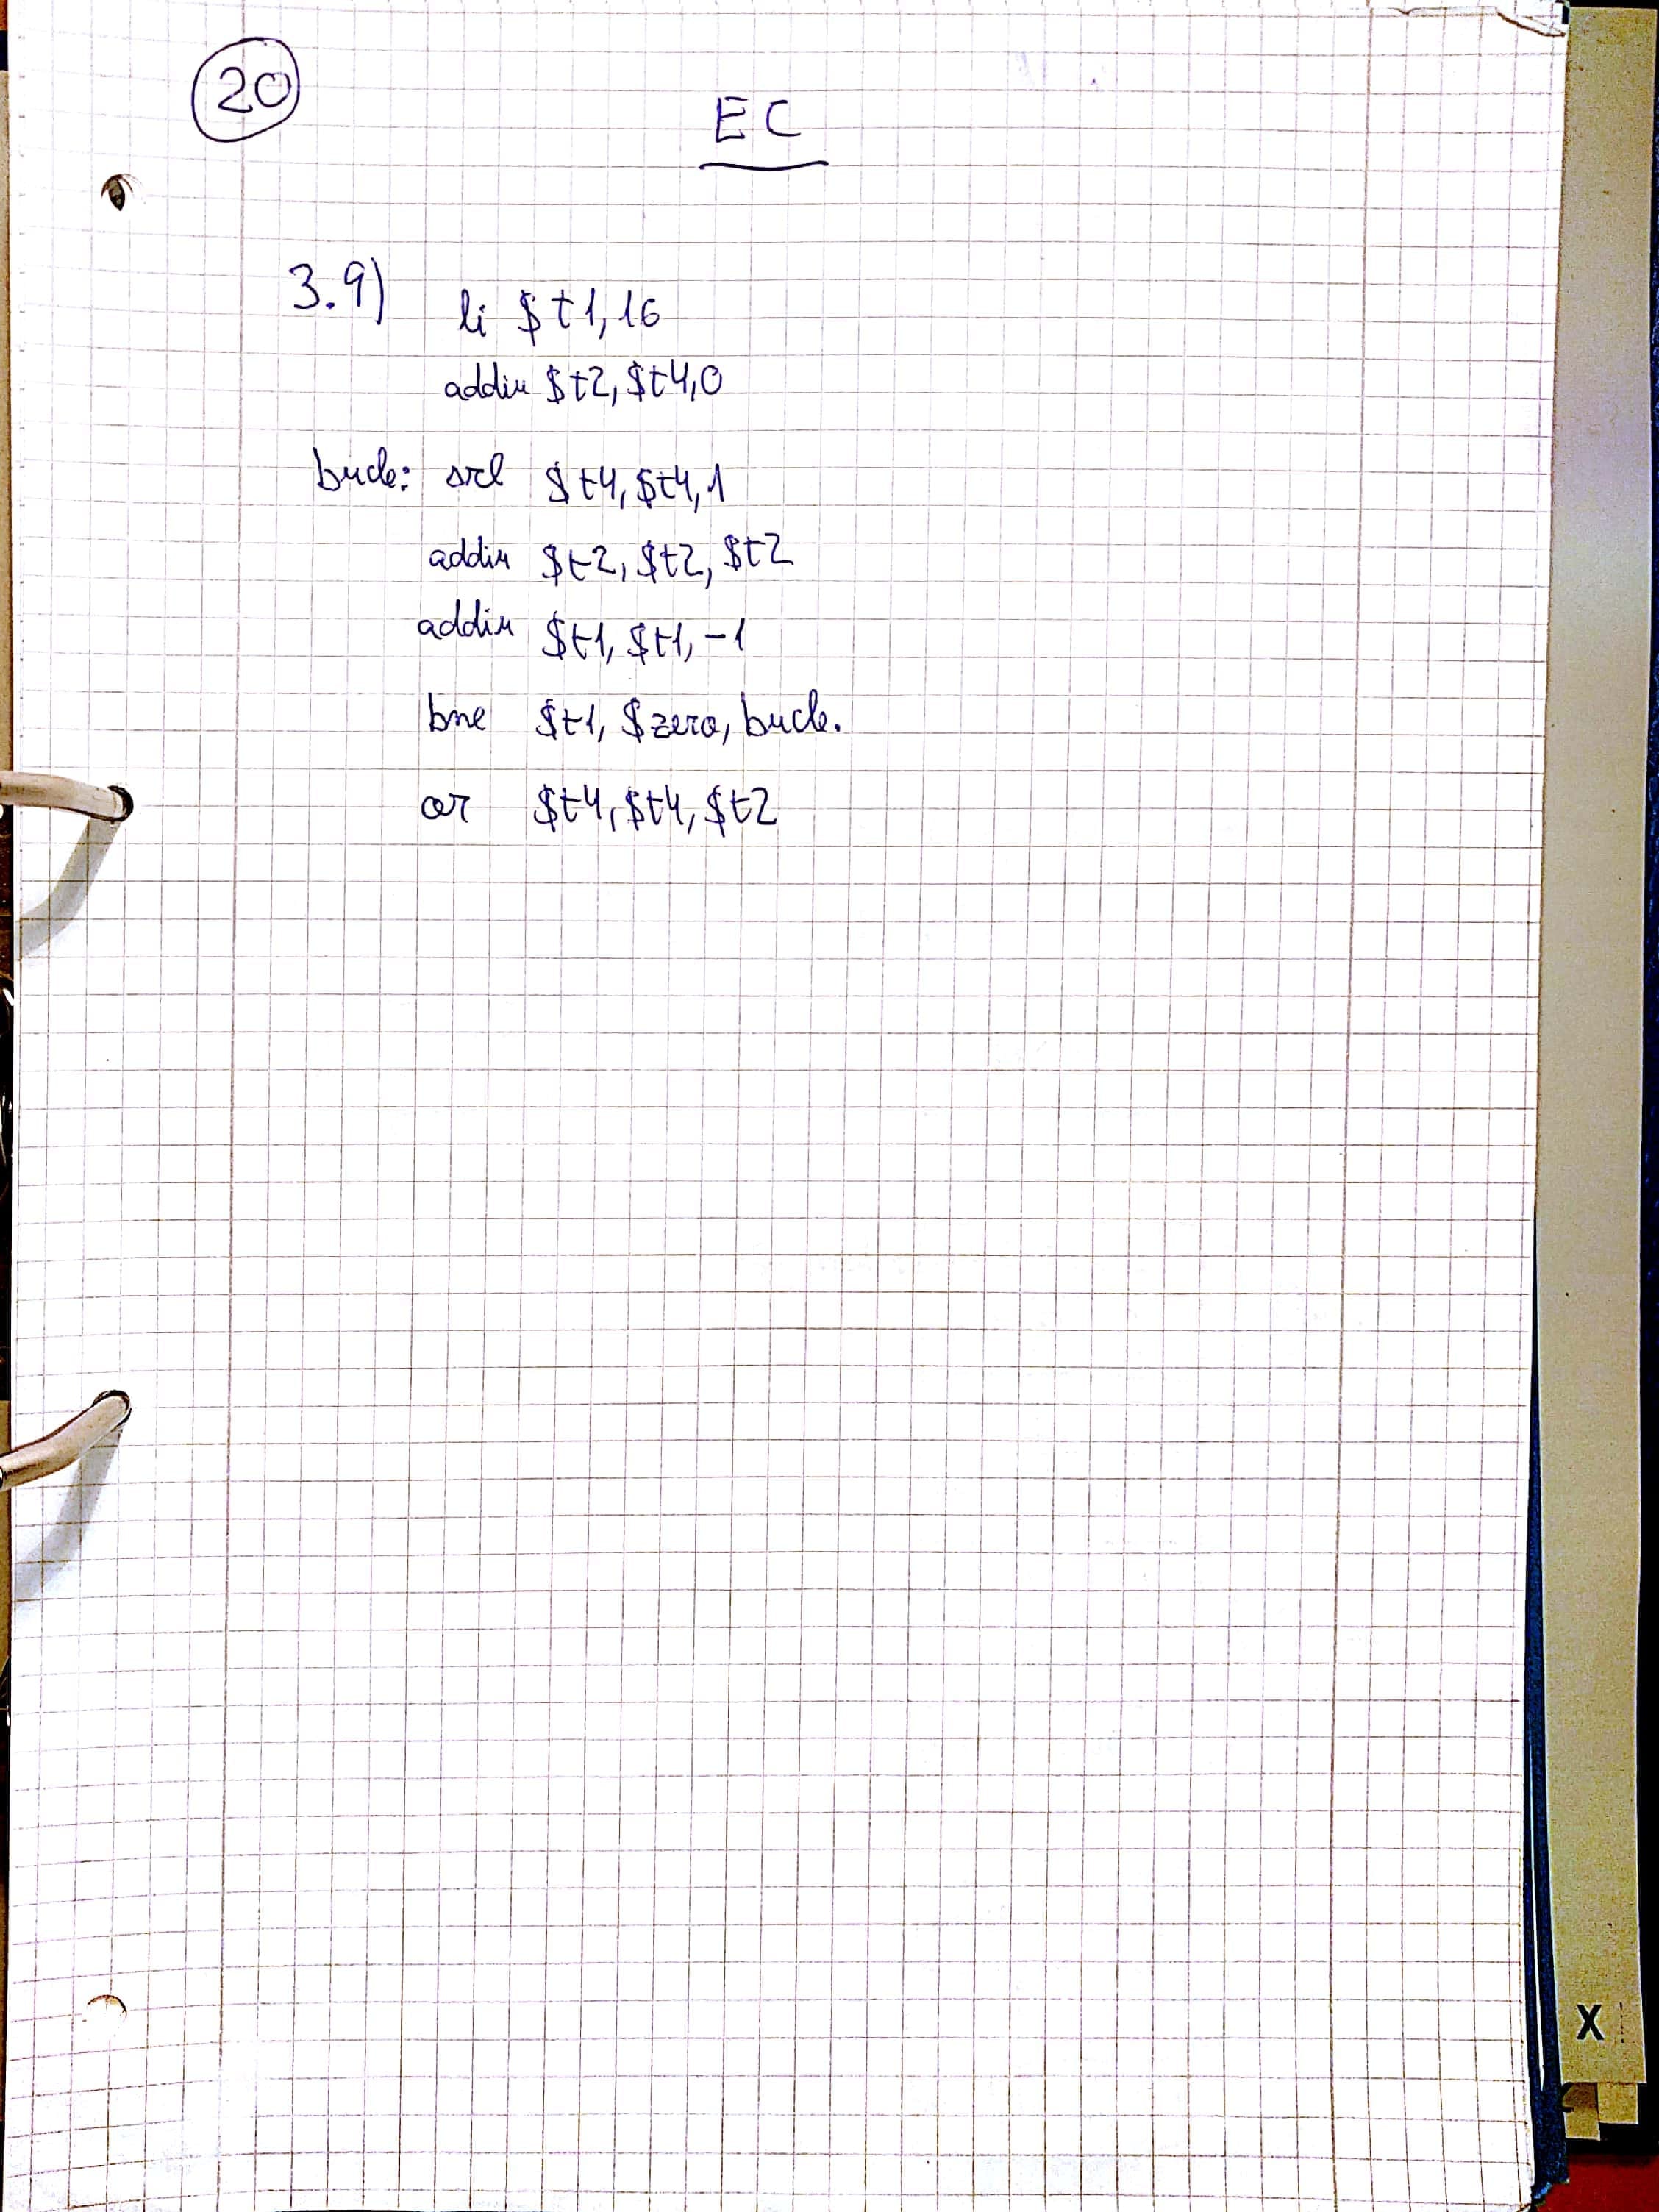 20
EC
3.9)
li $t1, 16
addiu $t2, $t4, 0
bucle: srl $t4, $t4, 1
addiu $t2, $t2, $t2
addiu $t1, $t1, -1
bne $t1, $zero, bucle.
or $t4, $t4, $t2
X